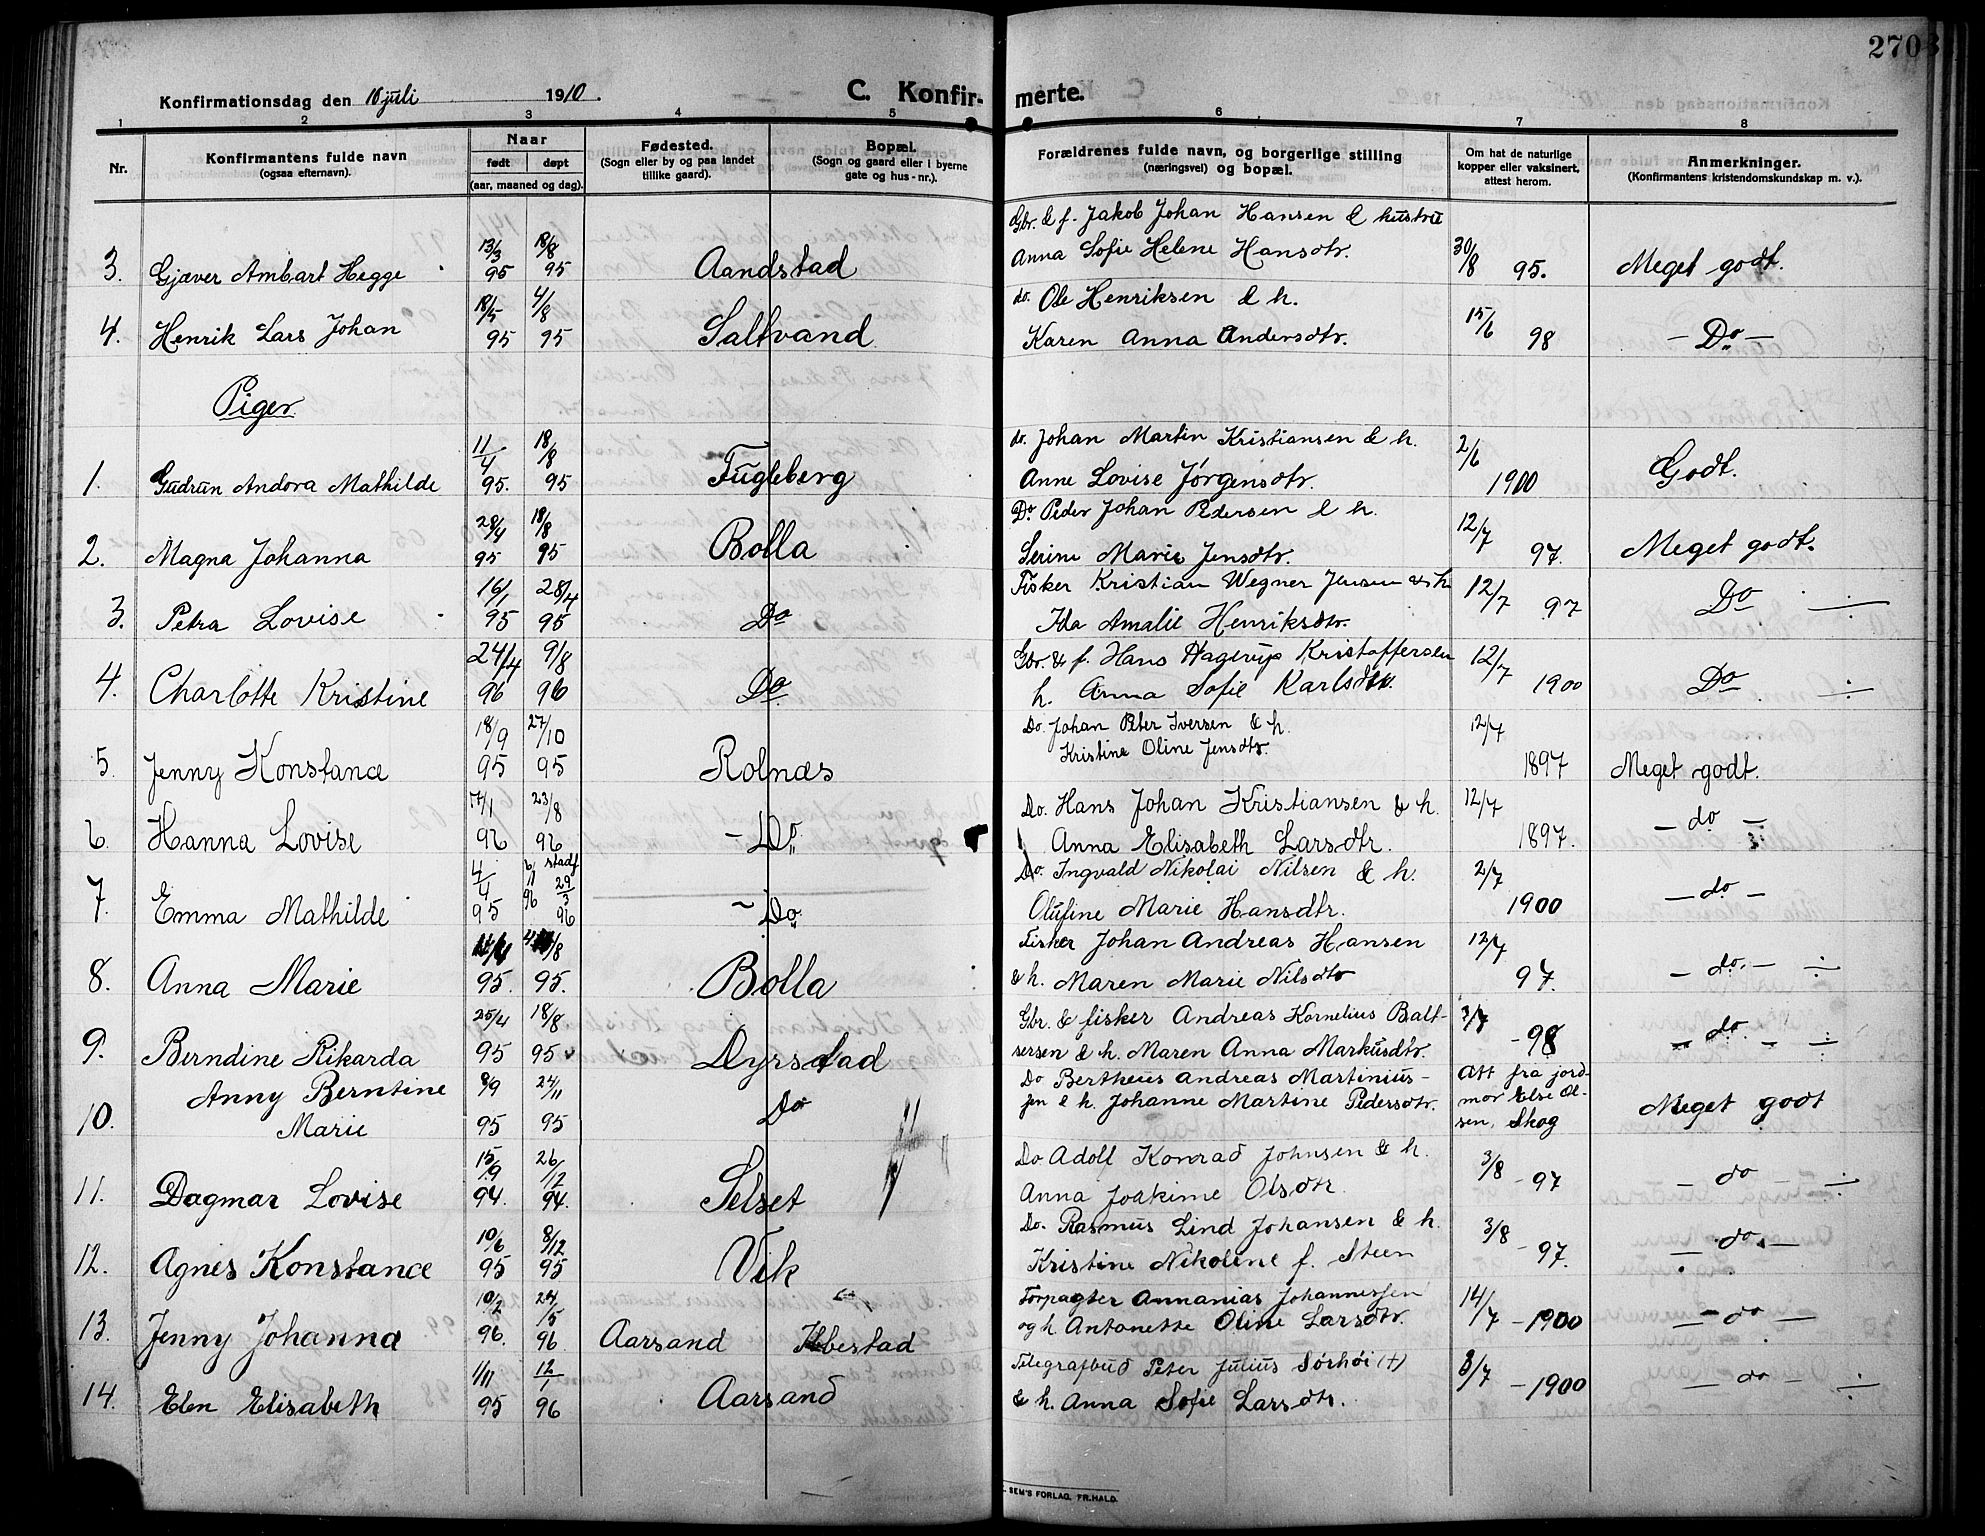 270
Konfirmationsdag den 10 juli 1910.
C. Konfir-merte.
1 2 3 4 5 6 7 8
Nr.
Konfirmantens fulde navn
(ogsaa efternavn).
Naar
født døpt
(aar, maaned og dag).
Fødested.
(Sogn eller by og paa landet
tillike gaard).
Bopæl.
(Sogn og gaard eller i byerne
gate og hus-nr.).
Forældrenes fulde navn, og borgerlige stilling
(næringsvei) og bopæl.
Om hat de naturlige
kopper eller vaksinert,
attest herom.
Anmerkninger.
(Konfirmantens kristendomskundskap m. v.).
Gbr. & f. Jakob Johan Hansen & hustru
3. Gjæver Ambart Hegge 13/3 95 18/8 95 Aandstad Anna Sofie Helene Hansdtr. 30/8 95. Meget godt.
do. Ole Henriksen & h.
4. Henrik Lars Johan 18/5 95 4/8 95 Saltvand Karen Anna Andersdtr. 15/6 98 - Do -
Piger
do. Johan Martin Kristiansen & h.
1. Gudrun Andora Mathilde 11/4 95. 18/8 95 Fugleberg Anne Lovise Jørgensdtr. 2/6 1900 Godt.
Do Peder Johan Pedersen & h.
2. Magna Johanna 28/4 95 18/8 95 Bolla Serine Marie Jensdtr. 12/7 97. Meget godt.
Fisker Kristian Wegner Jensen & h
3. Petra Lovise 16/1 95 28/4 95 Do Ida Amalie Henriksdtr. 12/7 97 Do ÷
Gbr. & f. Hans Hagerup Kristoffersen
4. Charlotte Kristine 24/4 96 9/8 96 Do h. Anna Sofie Karlsdtr. 12/7 1900 Do ÷
Do. Johan Peter Iversen & h.
5. Jenny Konstance 18/9 95 27/10 95 Rolnæs Kristine Oline Jensdtr. 12/7 1897 Meget godt.
Do. Hans Johan Kristiansen & h.
6. Hanna Lovise 96 23/8 96 - Do Anna Elisabeth Larsdtr. 12/7 1897. - do -
Do. Ingvald Nikolai Nilsen & h.
7. Emma Mathilde 4/4 95 6/11 96 stadf 29/3 96 - Do Olufine Marie Hansdtr. 2/7 1900 - do -
Fisker Johan Andreas Hansen
8. Anna Marie 95. 95. Bolla & h. Maren Marie Nilsdtr 12/7 97. - do. - ÷
Gbr. & fisker Andreas Kornelius Balt-
9. Berndine Rikarda 25/4 95 18/8 95 Dyrstad sersen & h. Maren Anna Markusdtr. 3/7 - 98 - do. - ÷
Do Bertheus Andreas Martinius-
10. Anny Berntine 8/9 24/11 Do sen & h. Johanne Martine Pedersdtr. Att fra jord-
Marie 95 95 mor Else Ol-
sen, Skog Meget godt
Do. Adolf Konrad Johnsen & h.
11. Dagmar Lovise 15/9 94. 26/12 94. Selset Anna Joakime Olsdtr. 3/8 - 97 - do - ÷
Do. Rasmus Lind Johansen & h.
12. Agnes Konstance 10/6 95 8/12 95 Vik Kristine Nikoline f. Steen 3/8 - 97. - do. -
Forpagter Annanias Johannessen
13. Jenny Johanna 10/2 96. 24/5 96 Aarsand Ibbestad og h. Antonette Oline Larsdtr. 14/7 - 1900 - do -
Telegrafbud Peter Julius Sørhøi (+)
14. Elen Elisabeth 1/11 95 12/1 96 Aarsand & h. Anna Sofie Larsdtr. 3/7 - 1900 - do - ÷
SEM'S FORLAG. FR.HALD.